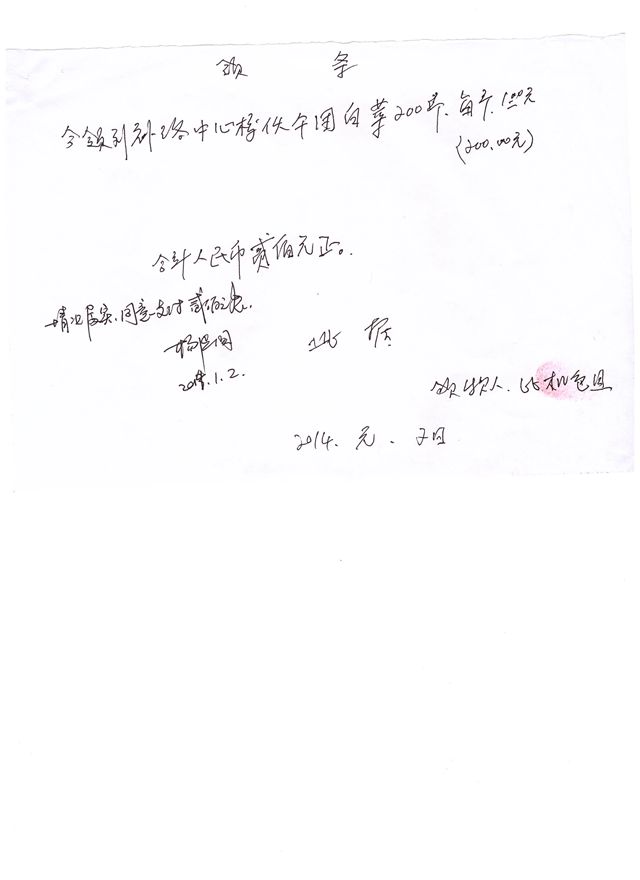 领 条
今领到补路中心校伙午团白菜200斤，每斤1.00元
(200.00元)
合计人民币贰佰元正。
情况属实，同意支付贰佰元。
2014.1.2.
此据
领款人：
2014. 元. 2日